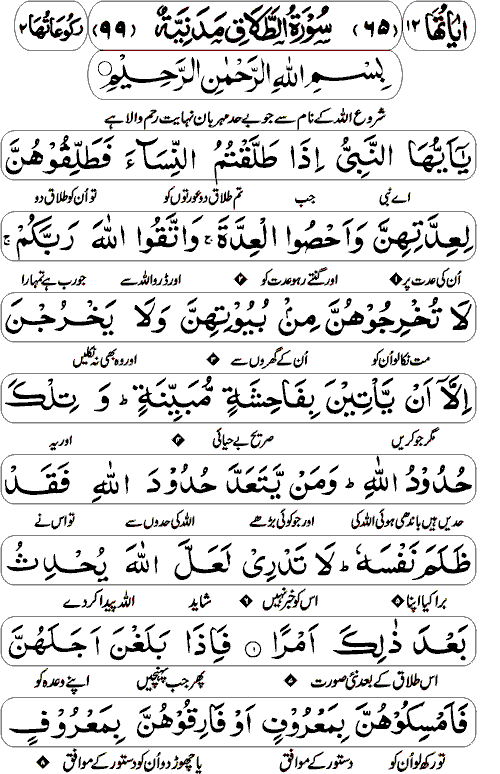 اٰیَاتُهَا ۱۲ (۶۵) سُوْرَةُ الطَّلَاقِ مَدَنِیَّةٌ (۹۹) رُکُوْعَاتُهَا ۲
بِسْمِ اللهِ الرَّحْمٰنِ الرَّحِیْمِ
شروع اللہ کے نام سے جو بے حد مہربان نہایت رحم والا ہے
یٰۤاَیُّهَا النَّبِیُّ اِذَا طَلَّقْتُمُ النِّسَآءَ فَطَلِّقُوْهُنَّ
اے نبی جب تم طلاق دو عورتوں کو تو اُن کو طلاق دو
لِعِدَّتِهِنَّ وَاَحْصُوا الْعِدَّةَ ۚ وَاتَّقُوا اللهَ رَبَّکُمْ ۚ
اُن کی عدت پر ۱ اور گنتے رہو عدت کو ۲ اور ڈرو اللہ سے جو رب ہے تمہارا
لَا تُخْرِجُوْهُنَّ مِنْۢ بُیُوْتِهِنَّ وَلَا یَخْرُجْنَ
مت نکالو اُن کو اُن کے گھروں سے ۳ اور وہ بھی نہ نکلیں
اِلَّاۤ اَنْ یَّاْتِیْنَ بِفَاحِشَةٍ مُّبَیِّنَةٍ ؕ وَ تِلْكَ
مگر جو کریں صریح بے حیائی ۴ اور یہ
حُدُوْدُ اللهِ ؕ وَمَنْ یَّتَعَدَّ حُدُوْدَ اللهِ فَقَدْ
حدیں ہیں باندھی ہوئی اللہ کی اور جو کوئی بڑھے اللہ کی حدوں سے تو اس نے
ظَلَمَ نَفْسَهٗ ؕ لَا تَدْرِیْ لَعَلَّ اللهَ یُحْدِثُ
برا کیا اپنا ۵ اس کو خبر نہیں ۶ شاید اللہ پیدا کر دے
بَعْدَ ذٰلِكَ اَمْرًا ۱ فَاِذَا بَلَغْنَ اَجَلَهُنَّ
اس طلاق کے بعد نئی صورت پھر جب پہنچیں اپنے وعدہ کو
فَاَمْسِکُوْهُنَّ بِمَعْرُوْفٍ اَوْ فَارِقُوْهُنَّ بِمَعْرُوْفٍ
تو رکھ لو اُن کو دستور کے موافق یا چھوڑ دو اُن کو دستور کے موافق ۸